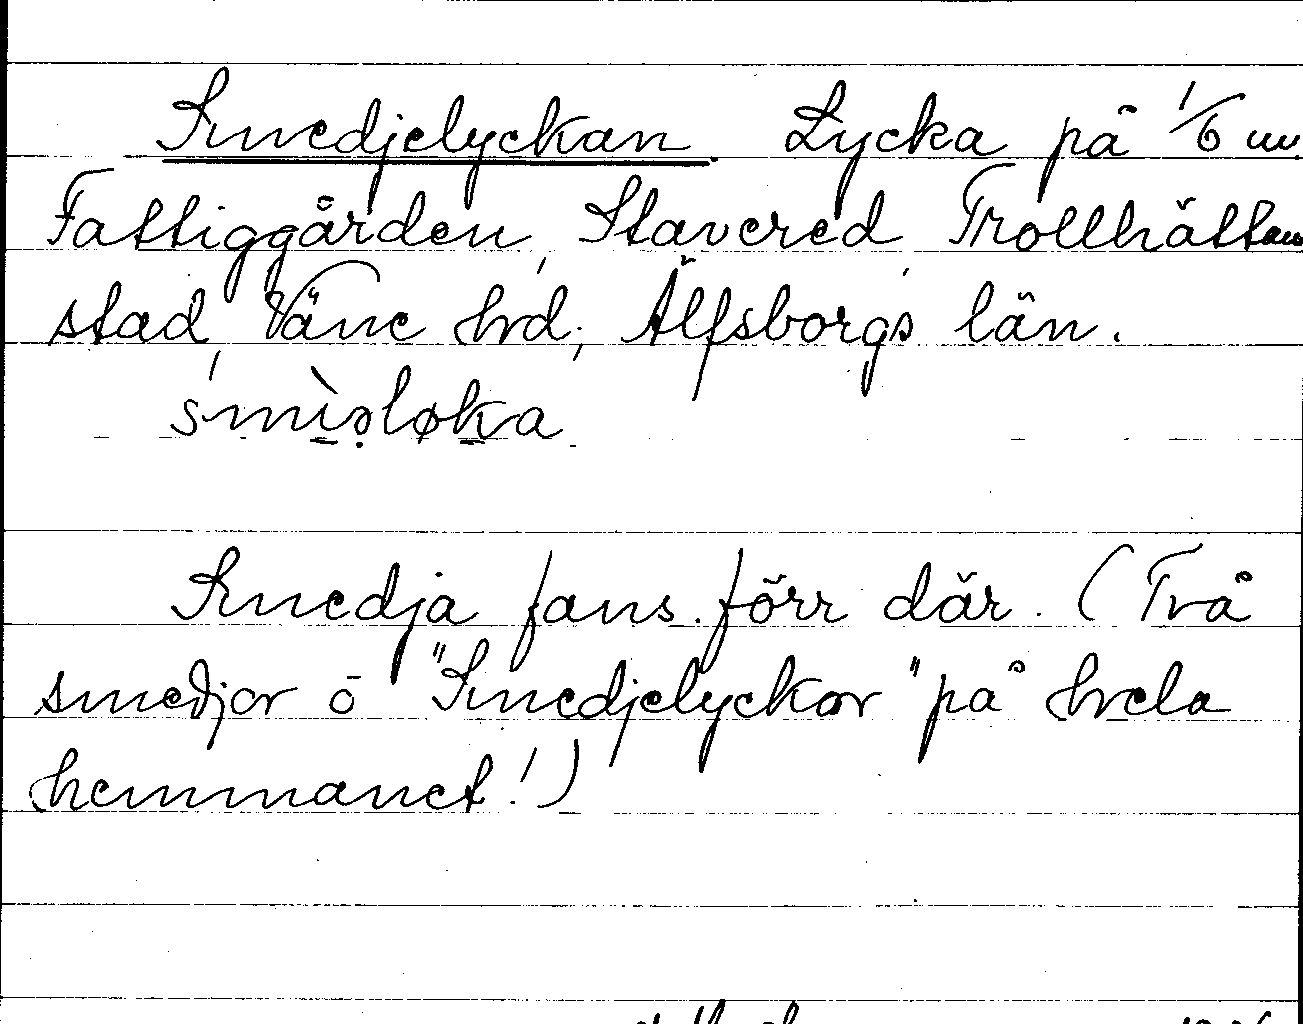 Smedjelyckan. Lycka på 1/6 m
Fattiggården, Stavered, Trollhättans
stad, Väne hrd; Älfsborgs län.
smìəløka
Smedja fans förr där. (Två
smedjor ō "Smedjelyckor" på hela
hemmanet!)